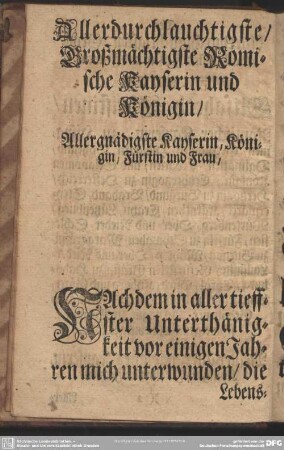 Allerdurchlauchtigste/
Großmächtigste Römi-
sche Kayserin und
Königin/
Allergnädigste Kayserin, Köni-
gin/ Fürstin und Frau/
NAchdem in aller tieff-
ster Unterthänig-
keit vor einigen Jah-
ren mich unterwunden/ die
Lebens-
DFG